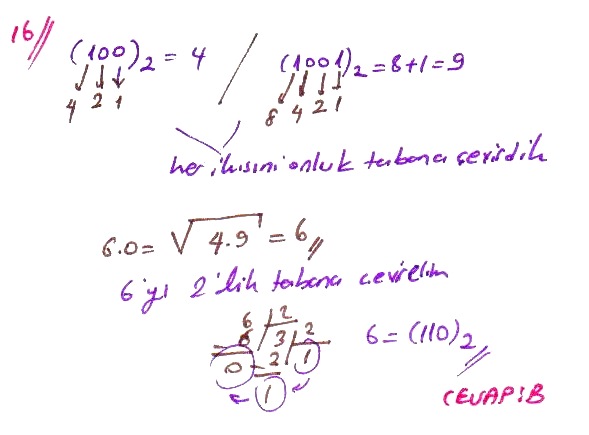 16//
(100)₂ = 4 / (1001)₂ = 8+1 = 9
4 2 1 8 4 2 1
her ikisini onluk tabana çevirdik
G.O = √4.9 = 6//
6'yı 2'lik tabana çevirelim
6 2
6 3 2 6 = (110)₂
0 2 1
1
CEVAP:B